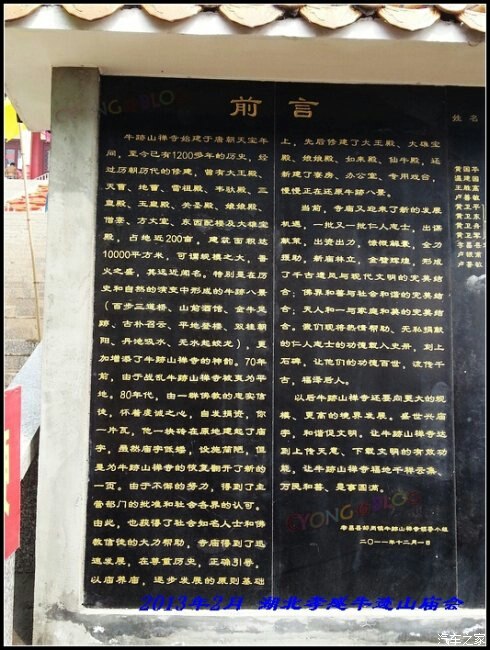 前言
牛跡山禅寺始建于唐朝天宝年
间，至今已有1200多年的历史，经
过历朝历代的修建，曾有大王殿、
天曹、地曹、雷祖殿、韦驮殿、三
皇殿、玉皇殿、关圣殿、娘娘殿、
僧寮、方丈室、东西配楼及大雄宝
殿，占地近200亩，建筑面积达
10000平方米，可谓规模之大，香
火之盛，其远近闻名。特别是在历
史和自然的演变中形成的牛跡八景
（百步三道桥、山前酒馆、金牛足
跡、古朴召云、平地登楼、双桂朝
阳、丹池吸水、无水起蛟龙），更
加增添了牛跡山禅寺的神韵。70年
前，由于战乱牛跡山禅寺被夷为平
地，80年代，由一群佛教的忠实信
徒，怀着虔诚之心，自发捐资，你
一片瓦，他一块砖在原地建起了庙
宇，虽然庙宇低矮，设施简陋，但
是为牛跡山禅寺的恢复翻开了新的
一页。由于不懈的努力，得到了主
管部门的批准和社会各界的认可。
由此，也获得了社会知名人士和佛
教信徒的大力帮助，寺庙得到了迅
速发展，在尊重历史，正确引导，
以庙养庙，逐步发展的原则基础
上，先后修建了大王殿、大雄宝
殿、娘娘殿、如来殿、仙牛殿，还
新建了寮房、办公室、专用戏台，
慢慢正在还原牛跡八景。
当前，寺庙又迎来了新的发展
机遇，一批又一批仁人志士，出谋
献策，出资出力，慷慨解囊，全力
援助，新庙林立，金碧辉煌，形成
了千古遗风与现代文明的完美结
合；佛界和善与社会和谐的完美结
合；天人和一与家庭和美的完美结
合。我们现将热情帮助、无私捐献
的仁人志士的功德载入史册，刻上
石碑，让他们的功德百世，流传千
古，福泽后人。
以后牛跡山禅寺还要向更大的规
模、更高的境界发展，盛世兴庙
宇，和谐促文明。让牛跡山禅寺达
到上传天意、下载文明的有效功
能，让牛跡山禅寺福地千禅云集、
万民和善、是事圆满。
二〇一一年十二月一日
姓名
黄国平
温建国
王胜高
卢善敏
黄卫平
黄卫东
黄卫舟
黄卫军
卢银高
卢善敏
2013年2月 湖北孝感牛迹山庙会
汽车之家